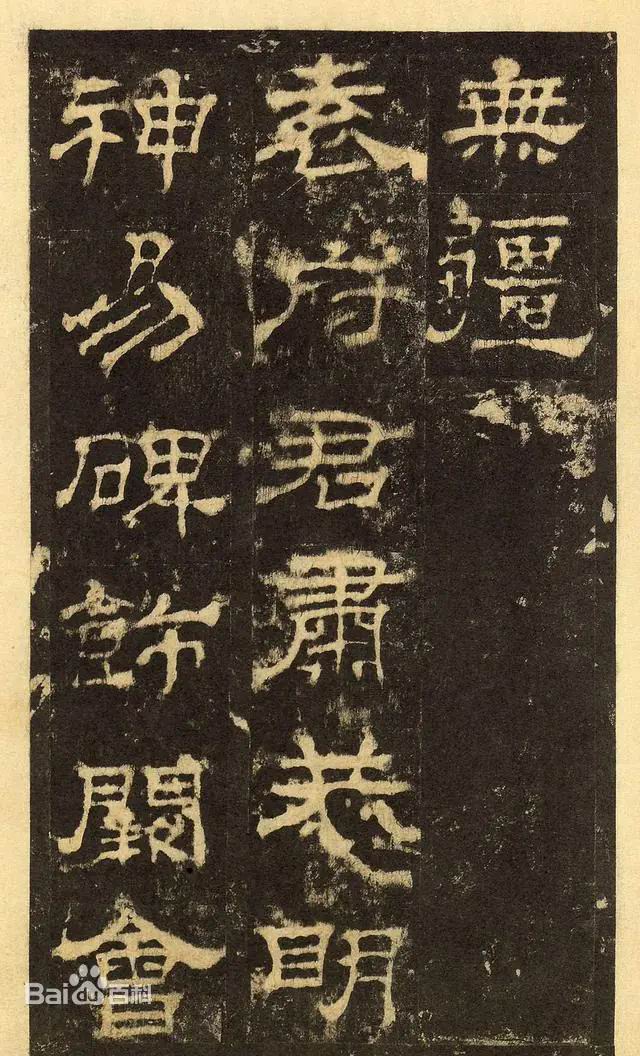 無疆
袁府君肅恭明
神易碑飾闕會
Bai百科